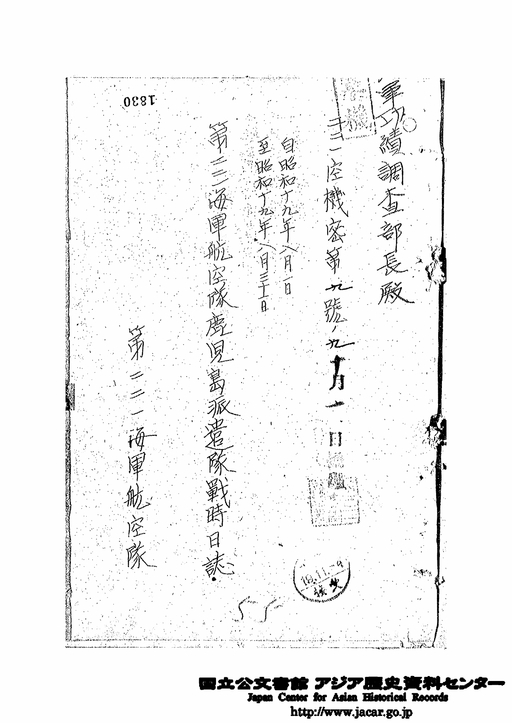 軍功績調査部長殿
二二一空機密第九號ノ九
十月一日
自昭和十九年八月一日
至昭和十九年八月三十一日
第二二一海軍航空隊鹿児島派遣隊戰時日誌
第二二一海軍航空隊
1830
国立公文書館 アジア歴史資料センター
Japan Center for Asian Historical Records
http://www.jacar.go.jp